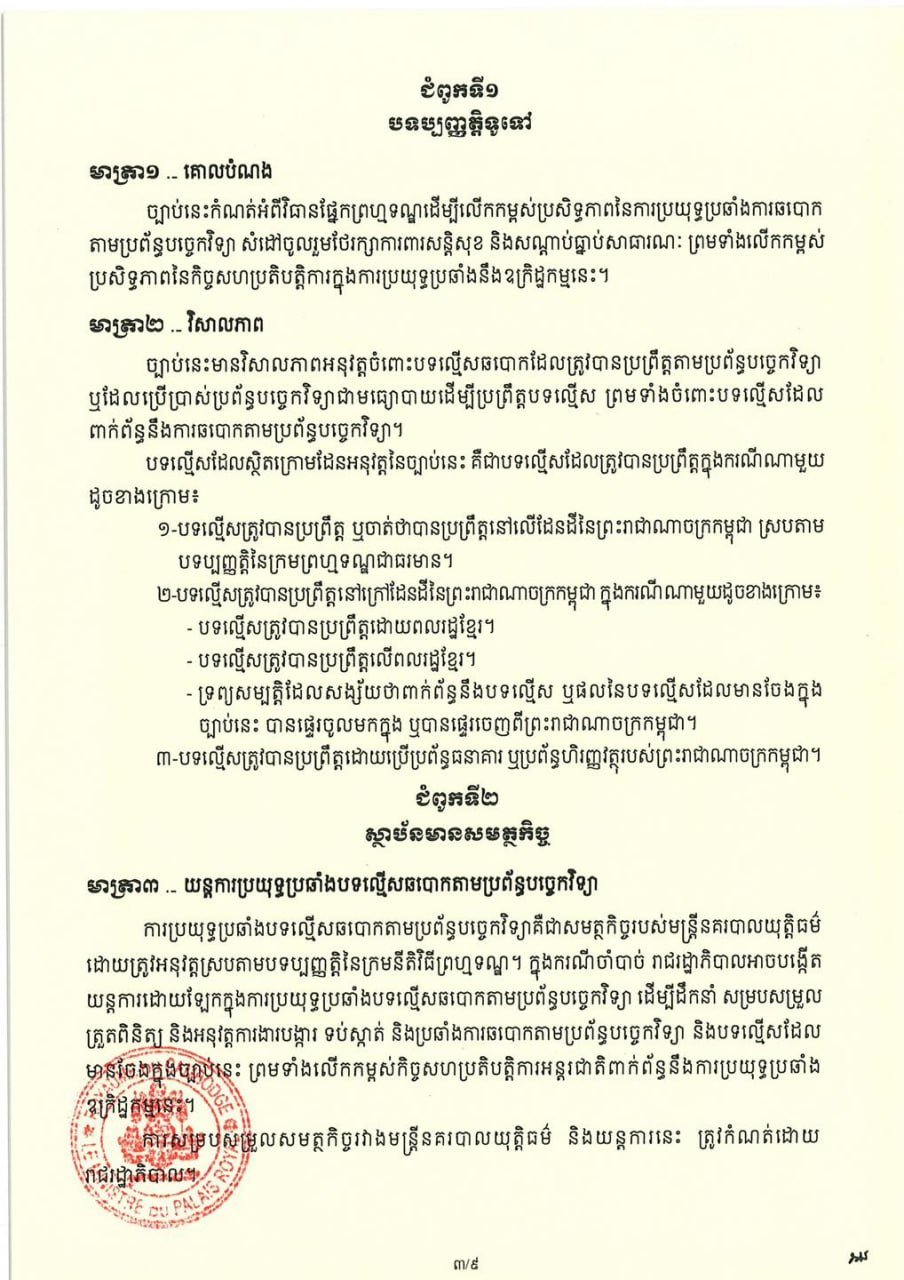 ជំពូកទី១
បទប្បញ្ញត្តិទូទៅ
មាត្រា១ .. គោលបំណង
ច្បាប់នេះកំណត់អំពីវិធានផ្នែកព្រហ្មទណ្ឌដើម្បីលើកកម្ពស់ប្រសិទ្ធភាពនៃការប្រយុទ្ធប្រឆាំងការឆបោក
តាមប្រព័ន្ធបច្ចេកវិទ្យា សំដៅចូលរួមថែរក្សាការពារសន្តិសុខ និងសណ្តាប់ធ្នាប់សាធារណៈ ព្រមទាំងលើកកម្ពស់
ប្រសិទ្ធភាពនៃកិច្ចសហប្រតិបត្តិការក្នុងការប្រយុទ្ធប្រឆាំងនឹងឧក្រិដ្ឋកម្មនេះ។
មាត្រា២ .. វិសាលភាព
ច្បាប់នេះមានវិសាលភាពអនុវត្តចំពោះបទល្មើសឆបោកដែលត្រូវបានប្រព្រឹត្តតាមប្រព័ន្ធបច្ចេកវិទ្យា
ឬដែលប្រើប្រាស់ប្រព័ន្ធបច្ចេកវិទ្យាជាមធ្យោបាយដើម្បីប្រព្រឹត្តបទល្មើស ព្រមទាំងចំពោះបទល្មើសដែល
ពាក់ព័ន្ធនឹងការឆបោកតាមប្រព័ន្ធបច្ចេកវិទ្យា។
បទល្មើសដែលស្ថិតក្រោមដែនអនុវត្តនៃច្បាប់នេះ គឺជាបទល្មើសដែលត្រូវបានប្រព្រឹត្តក្នុងករណីណាមួយ
ដូចខាងក្រោម៖
១-បទល្មើសត្រូវបានប្រព្រឹត្ត ឬចាត់ថាបានប្រព្រឹត្តនៅលើដែនដីនៃព្រះរាជាណាចក្រកម្ពុជា ស្របតាម
បទប្បញ្ញត្តិនៃក្រមព្រហ្មទណ្ឌជាធរមាន។
២-បទល្មើសត្រូវបានប្រព្រឹត្តនៅក្រៅដែនដីនៃព្រះរាជាណាចក្រកម្ពុជា ក្នុងករណីណាមួយដូចខាងក្រោម៖
- បទល្មើសត្រូវបានប្រព្រឹត្តដោយពលរដ្ឋខ្មែរ។
- បទល្មើសត្រូវបានប្រព្រឹត្តលើពលរដ្ឋខ្មែរ។
- ទ្រព្យសម្បត្តិដែលសង្ស័យថាពាក់ព័ន្ធនឹងបទល្មើស ឬផលនៃបទល្មើសដែលមានចែងក្នុង
ច្បាប់នេះ បានផ្ទេរចូលមកក្នុង ឬបានផ្ទេរចេញពីព្រះរាជាណាចក្រកម្ពុជា។
៣-បទល្មើសត្រូវបានប្រព្រឹត្តដោយប្រើប្រព័ន្ធធនាគារ ឬប្រព័ន្ធហិរញ្ញវត្ថុរបស់ព្រះរាជាណាចក្រកម្ពុជា។
ជំពូកទី២
ស្ថាប័នមានសមត្ថកិច្ច
មាត្រា៣ .. យន្តការប្រយុទ្ធប្រឆាំងបទល្មើសឆបោកតាមប្រព័ន្ធបច្ចេកវិទ្យា
ការប្រយុទ្ធប្រឆាំងបទល្មើសឆបោកតាមប្រព័ន្ធបច្ចេកវិទ្យាគឺជាសមត្ថកិច្ចរបស់មន្ត្រីនគរបាលយុត្តិធម៌
ដោយត្រូវអនុវត្តស្របតាមបទប្បញ្ញត្តិនៃក្រមនីតិវិធីព្រហ្មទណ្ឌ។ ក្នុងករណីចាំបាច់ រាជរដ្ឋាភិបាលអាចបង្កើត
យន្តការដោយឡែកក្នុងការប្រយុទ្ធប្រឆាំងបទល្មើសឆបោកតាមប្រព័ន្ធបច្ចេកវិទ្យា ដើម្បីដឹកនាំ សម្របសម្រួល
ត្រួតពិនិត្យ និងអនុវត្តការងារបង្ការ ទប់ស្កាត់ និងប្រឆាំងការឆបោកតាមប្រព័ន្ធបច្ចេកវិទ្យា និងបទល្មើសដែល
មានចែងក្នុងច្បាប់នេះ ព្រមទាំងលើកកម្ពស់កិច្ចសហប្រតិបត្តិការអន្តរជាតិពាក់ព័ន្ធនឹងការប្រយុទ្ធប្រឆាំង
ឧក្រិដ្ឋកម្មនេះ។
ការសម្របសម្រួលសមត្ថកិច្ចរវាងមន្ត្រីនគរបាលយុត្តិធម៌ និងយន្តការនេះ ត្រូវកំណត់ដោយ
រាជរដ្ឋាភិបាល។
៣/៩